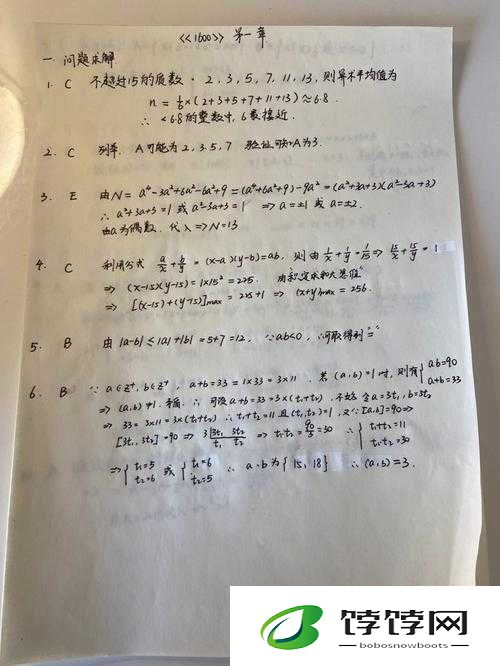 <<1600>> 第一章
一. 问题求解
1. C 不超过15的质数. 2, 3, 5, 7, 11, 13, 则算术平均值为
n = 1/6 × (2+3+5+7+11+13) ≈ 6.8.
∴ < 6.8 的整数中, 6 最接近.
2. C 列举. A可能为 2, 3, 5, 7 验证可知A为3.
3. E 由N = a⁴-3a²+6a²-6a²+9 = (a⁴+6a²+9)-9a² = (a²+3a+3)(a²-3a+3)
∴ a²+3a+3=1 或 a²-3a+3=1 ⇒ a=±1 或 a=±2.
由a为偶数. 代入 ⇒ N=13
4. C 利用公式 a/x + b/y = (x-a)(y-b)=ab, 则由 1/x + 1/y = 1/15 ⇒ 15/x + 15/y = 1
⇒ (x-15)(y-15) = 1×15² = 225. 由积定求和大思维
⇒ [(x-15)+(y-15)]max = 225+1 ⇒ (x+y)max = 256.
5. B 由 |a-b| ≤ |a|+|b| = 5+7 = 12, ∵ab<0, ∴可取得到"="
6. B ∵ a∈Z⁺, b∈Z⁺, a+b=33=1×33=3×11. 若(a,b)=1时, 则有{ab=90
a+b=33
⇒ (a,b)≠1. 矛盾. ∴ 可设a+b=33=3×(t₁+t₂). 不妨令a=3t₁, b=3t₂
⇒ 33=3×11=3×(t₁+t₂) ∴ t₁+t₂=11 且 (t₁,t₂)=1, 又∵[a,b]=90 ⇒
[3t₁, 3t₂]=90 ⇒ 3|3t₁ 3t₂ ⇒ t₁t₂ = 90/3 = 30 ∴ {t₁+t₂=11
t₁ t₂ t₁t₂=30
⇒ {t₁=5 或 {t₁=6 ∴ a.b为{15, 18} ∴ (a,b)=3.
t₂=6 t₂=5
饽饽网
bobosnowboots.com